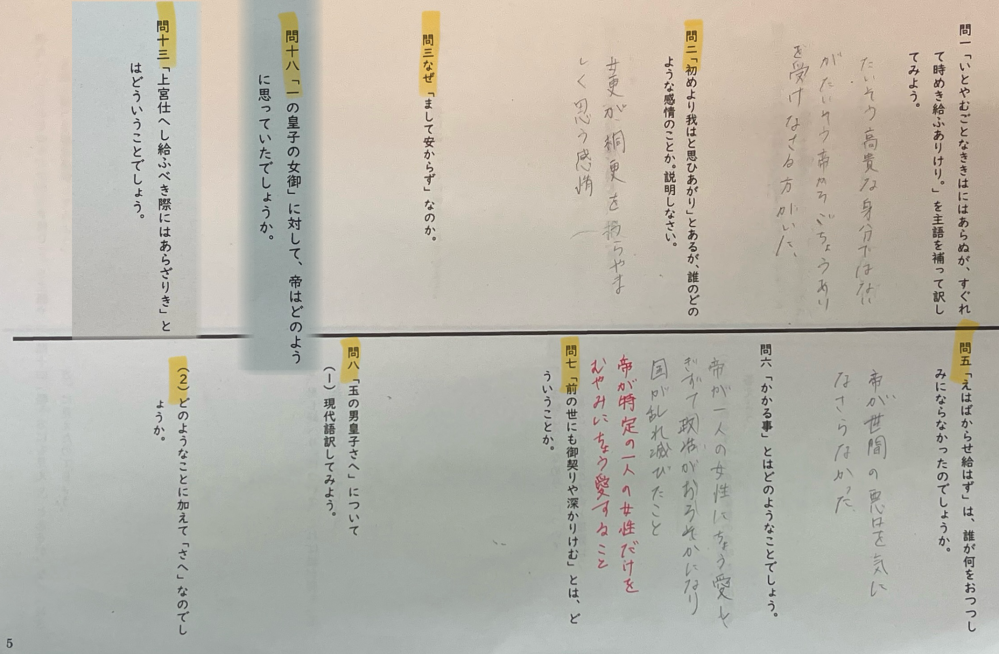 問一「いとやむごとなききはにはあらぬが、すぐれ
て時めき給ふありけり。」を主語を補って訳し
てみよう。
たいそう高貴な身分ではない
がたいそう帝からごちょうあい
を受けなさる方がいた、
問二「初めより我はと思ひあがり」とあるが、誰のどの
ような感情のことか。説明しなさい。
女更が桐更を
しく思う感情
問三なぜ「まして安からず」なのか。
問十八「一の皇子の女御」に対して、帝はどのよう
に思っていたでしょうか。
問十三「上宮仕へし給ふべき際にはあらざりき」と
はどういうことでしょう。
問五「えはばからせ給はず」は、誰が何をおつつし
みにならなかったのでしょうか。
帝が世間の悪口を気に
なさらなかった
問六「かかる事」とはどのようなことでしょう。
帝が一人の女性にちょう愛し
すぎて政治がおろそかになり
国が乱れ滅びたこと
帝が特定の一人の女性だけを
むやみにちょう愛すること
問七「前の世にも御契りや深かりけむ」とは、ど
ういうことか。
問八「玉の男皇子さへ」について
(1)現代語訳してみよう。
(2)どのようなことに加えて「さへ」なのでし
ょうか。
5